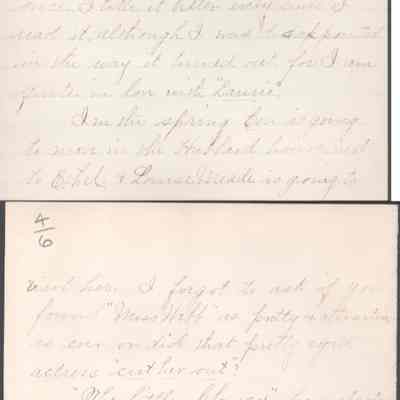 once. I like it better every time I
read it, although I was disappointed
in the way it turned out, for I am
quite in love with "Laurie".
In the spring Con is going
to move in the Hubbard house next
to Ethel. & Louise Meade is going to
4/6
visit her. I forgot to ask if you
found "Miss Webb" as pretty & attractive
as ever or did that pretty
actress "cut her out"?
"The little